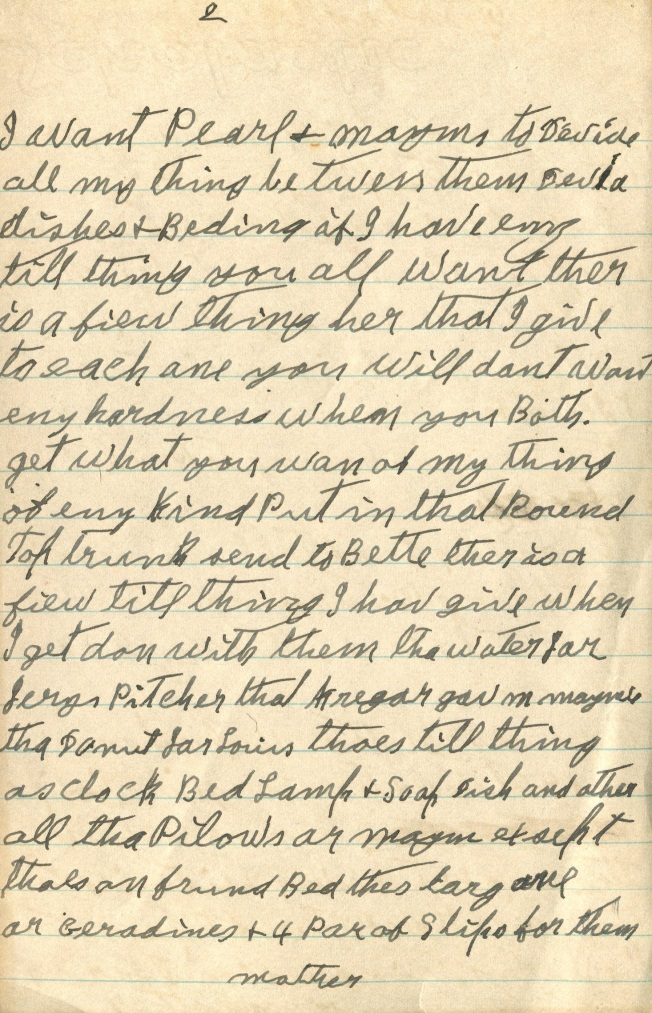 2
I want Pearl & mayms to Devide
all my thing be twens them
dishes & Beding if I have eny
till thing you all want ther
is a fiew thing her that I give
to each one you will dont want
eny hardness when you Both.
get what you wan of my thing
of eny Kind Put in that Round
Top trunk send to Bette ther is a
fiew titl thing I hav give when
I get don with them tha water Jar
Jerys Pitcher that gav m maymie
tha Donut Jar Louis thoes till thing
as clock Bed Lamp & Soap Dish and other
all tha Pilows ar maym exsept
thoes on frund Bed thes larg one
ar Geradines & 4 Par of Slips for them
mother